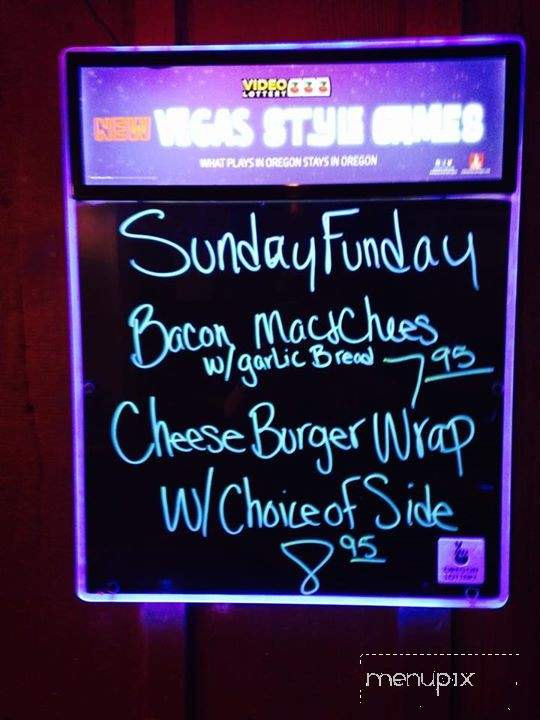 VIDEO
LOTTERY
NEW VEGAS STYLE GAMES
WHAT PLAYS IN OREGON STAYS IN OREGON
Sunday Funday
Bacon Mac&Chees
w/garlic Bread 7 95
Cheese Burger Wrap
W/Choice of Side
8 95
OREGON
LOTTERY
menupix